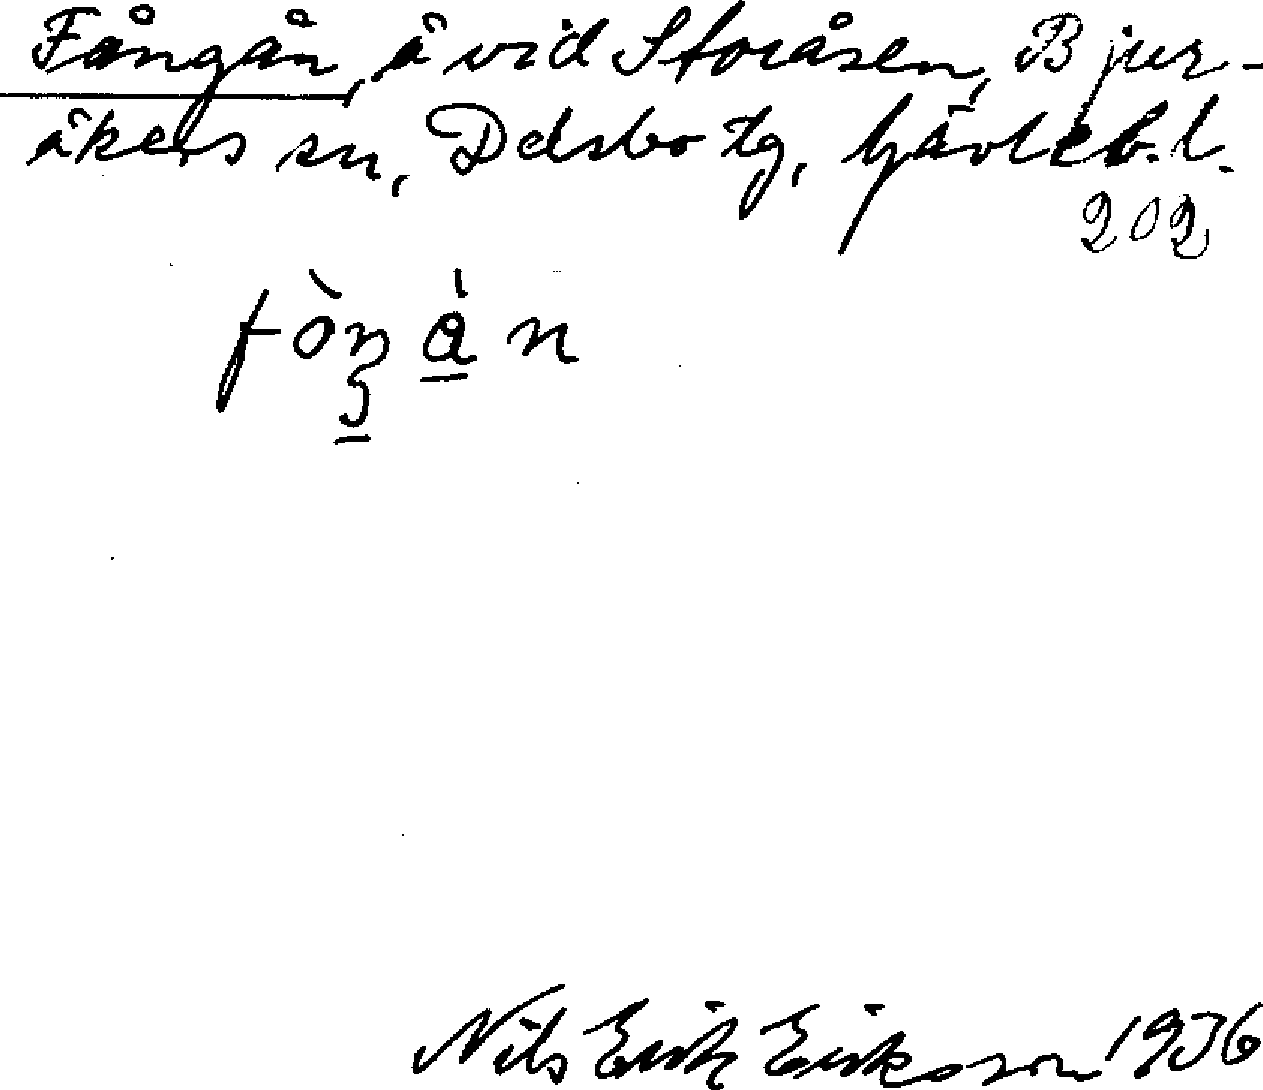 Fångån, å vid Storåsen, Bjur-
åkers sn, Delsbo tg, Gävleb. l.
202
Nils Erik Eriksson 1936